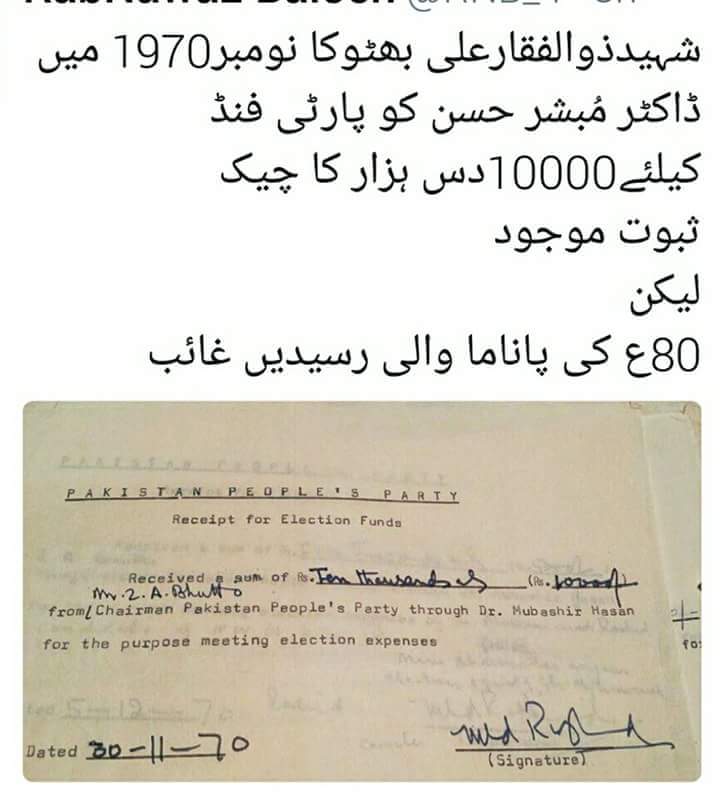 شہیدذوالفقارعلی بھٹوکا نومبر1970 میں
ڈاکٹر مُبشر حسن کو پارٹی فنڈ
کیلئے10000دس ہزار کا چیک
ثبوت موجود
لیکن
80ع کی پاناما والی رسیدیں غائب
PAKISTAN PEOPLE'S PARTY
Receipt for Election Funds
Received a sum of Rs. Ten thousands (Rs. 10000/-
Mr. Z. A. Bhutto
from/Chairman Pakistan People's Party through Dr. Mubashir Hasan
for the purpose meeting election expenses
Dated 30-11-70
(Signature)